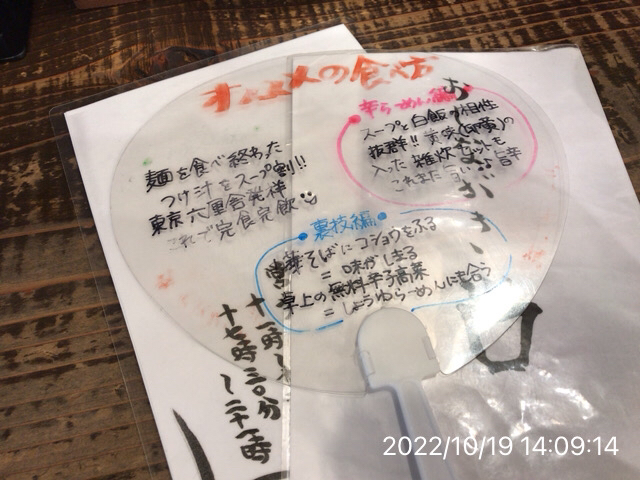 の食べ方
麺を食べ終わった
つけ汁をスープ割!!
東京六厘舎発祥
これで完食完飲
辛らーめん編
スープと白飯が相性
抜群!!
入った雑炊
これまた旨い 旨辛
裏技編
そばにコショウをふる
=味がしまる
卓上の無料辛子高菜
=しょうゆらーめんにも合う
十一時
十七時三〇分
〜二十一時
2022/10/19 14:09:14